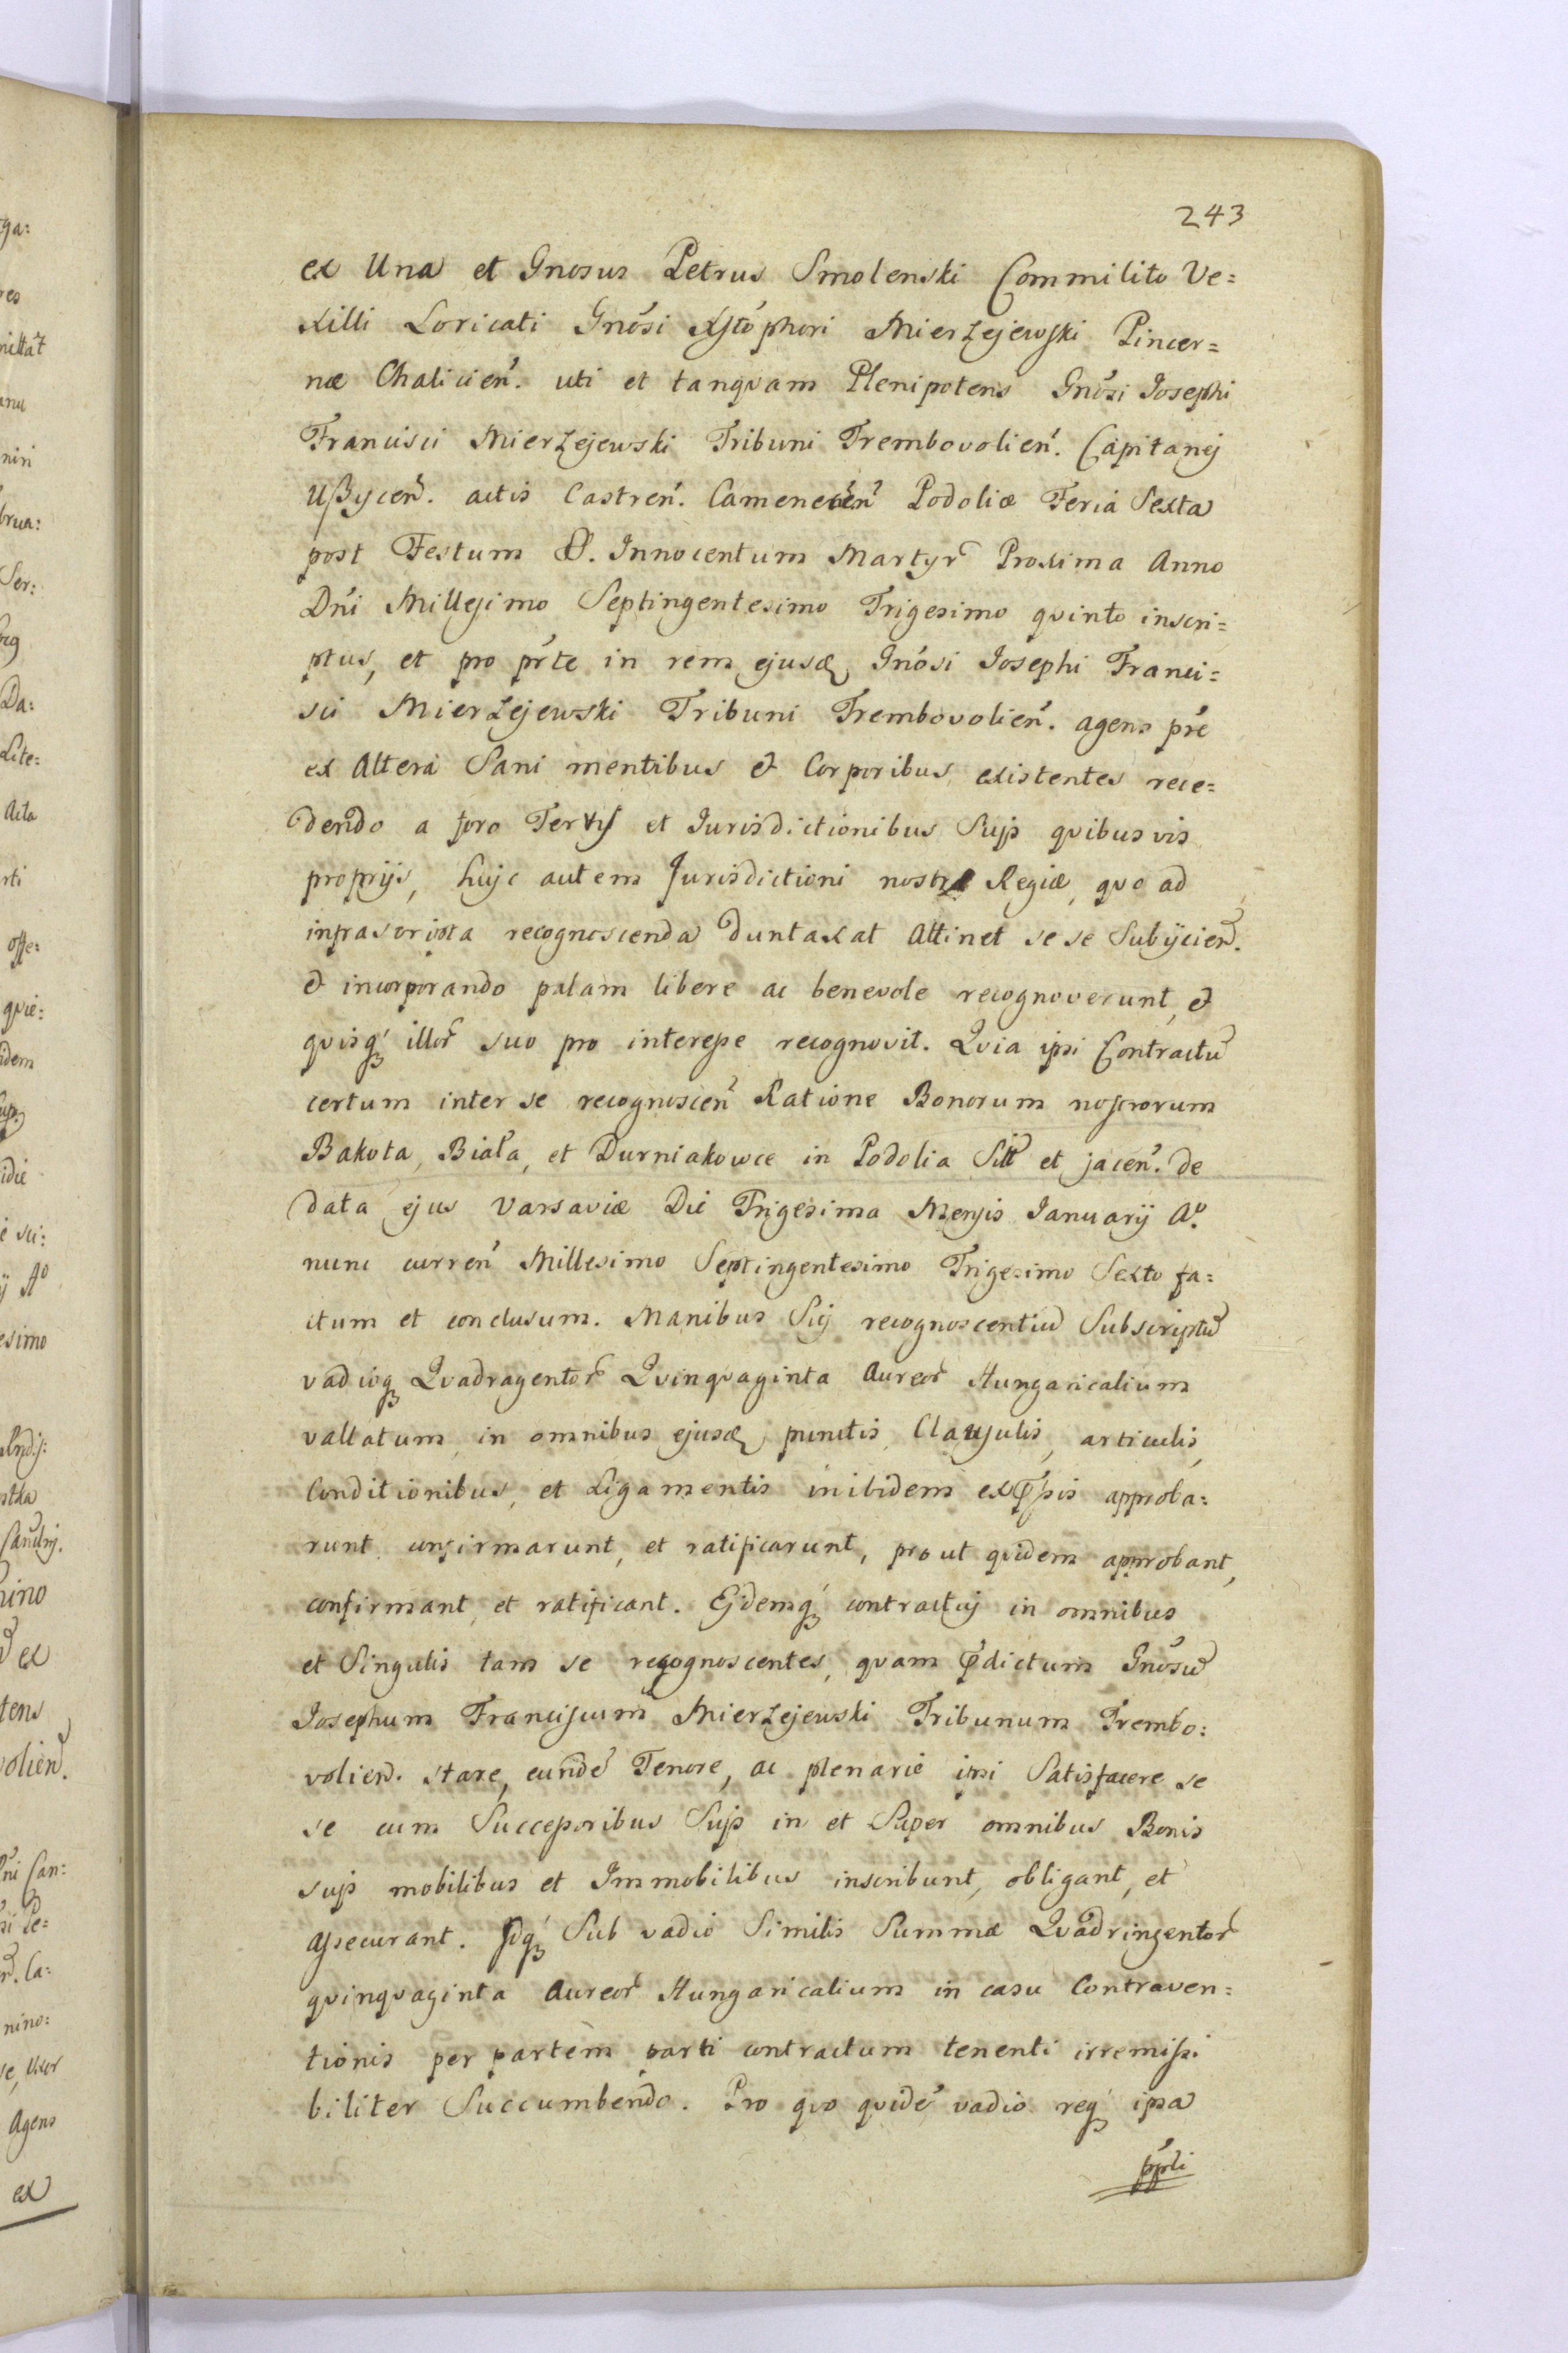 243
ex Una et Gnosus Petrus Smolenski Commilito Ve=
xilli Loricati Gnosi Xstophori Mierzejewski Pincer=
næ Chalicien. uti et tanqvam Plenipotens Gnosi Josephi
Francisci Mierzejewski Tribuni Trembovolien. Capitanej
Ussycen. actis Castren. Camenecen Podoliæ Feria Sexta
post Festum SS. Innocentum Martyr Proxima Anno
Dni Millesimo Septingentesimo Trigesimo qvinto inscri=
ptus, et pro pte in rem ejusd Gnosi Josephi Franci=
sci Mierzejewski Tribuni Trembovolien. agens pte
ex Altera Sani mentibus et Corporibus existentes rece=
dendo a foro Terris et Jurisdictionibus Sujs qvibusvis
proprijs, hujc autem Jurisdictioni nostræ Regiæ, qvo ad
infrascripta recognoscenda duntaxat Attinet se se Subijcien.
et incorporando palam libere ac benevole recognoverunt, et
qvisq illor suo pro interesse recognovit. Qvia ipsi Contractu
certum inter se recognoscen Ratione Bonorum nostrorum
Bakota, Biała, et Durniakowce in Podolia Sitt et jacen. de
data ejus Varsaviæ Die Trigesima Mensis Januarij Ao.
nunc curren Millesimo Septingentesimo Trigesimo Sexto fa=
ctum et conclusum. Manibus Sij recognoscentiu Subscriptu
vadioq Qvadragentor Qvinqvaginta Aureor Hungaricalium
vallatum, in omnibus ejusd punctis, Clausulis, articulis,
Conditionibus, et Ligamentis inibidem expssis approba=
runt confirmarunt, et ratificarunt, prout qvidem approbant,
confirmant, et ratificant. Ejdemq contractuj in omnibus
et Singulis tam se recognoscentes, qvam pdictum Gnosu
Josephum Franciscum Mierzejewski Tribunum Trembo=
volien. stare, eunde Tenore, ac plenarie ipsi Satisfacere se
se cum Successoribus Sujs in et Super omnibus Bonis
sujs mobilibus et Immobilibus inscribunt, obligant, et
assecurant. Idq Sub vadio Similis Summæ Qvadringentor
qvinqvaginta Aureor Hungaricalium in casu Contraven=
tionis per partem parti contractum tenenti irremissi
biliter Succumbendo. Pro qvo qvide vadio req ipsa
ppli